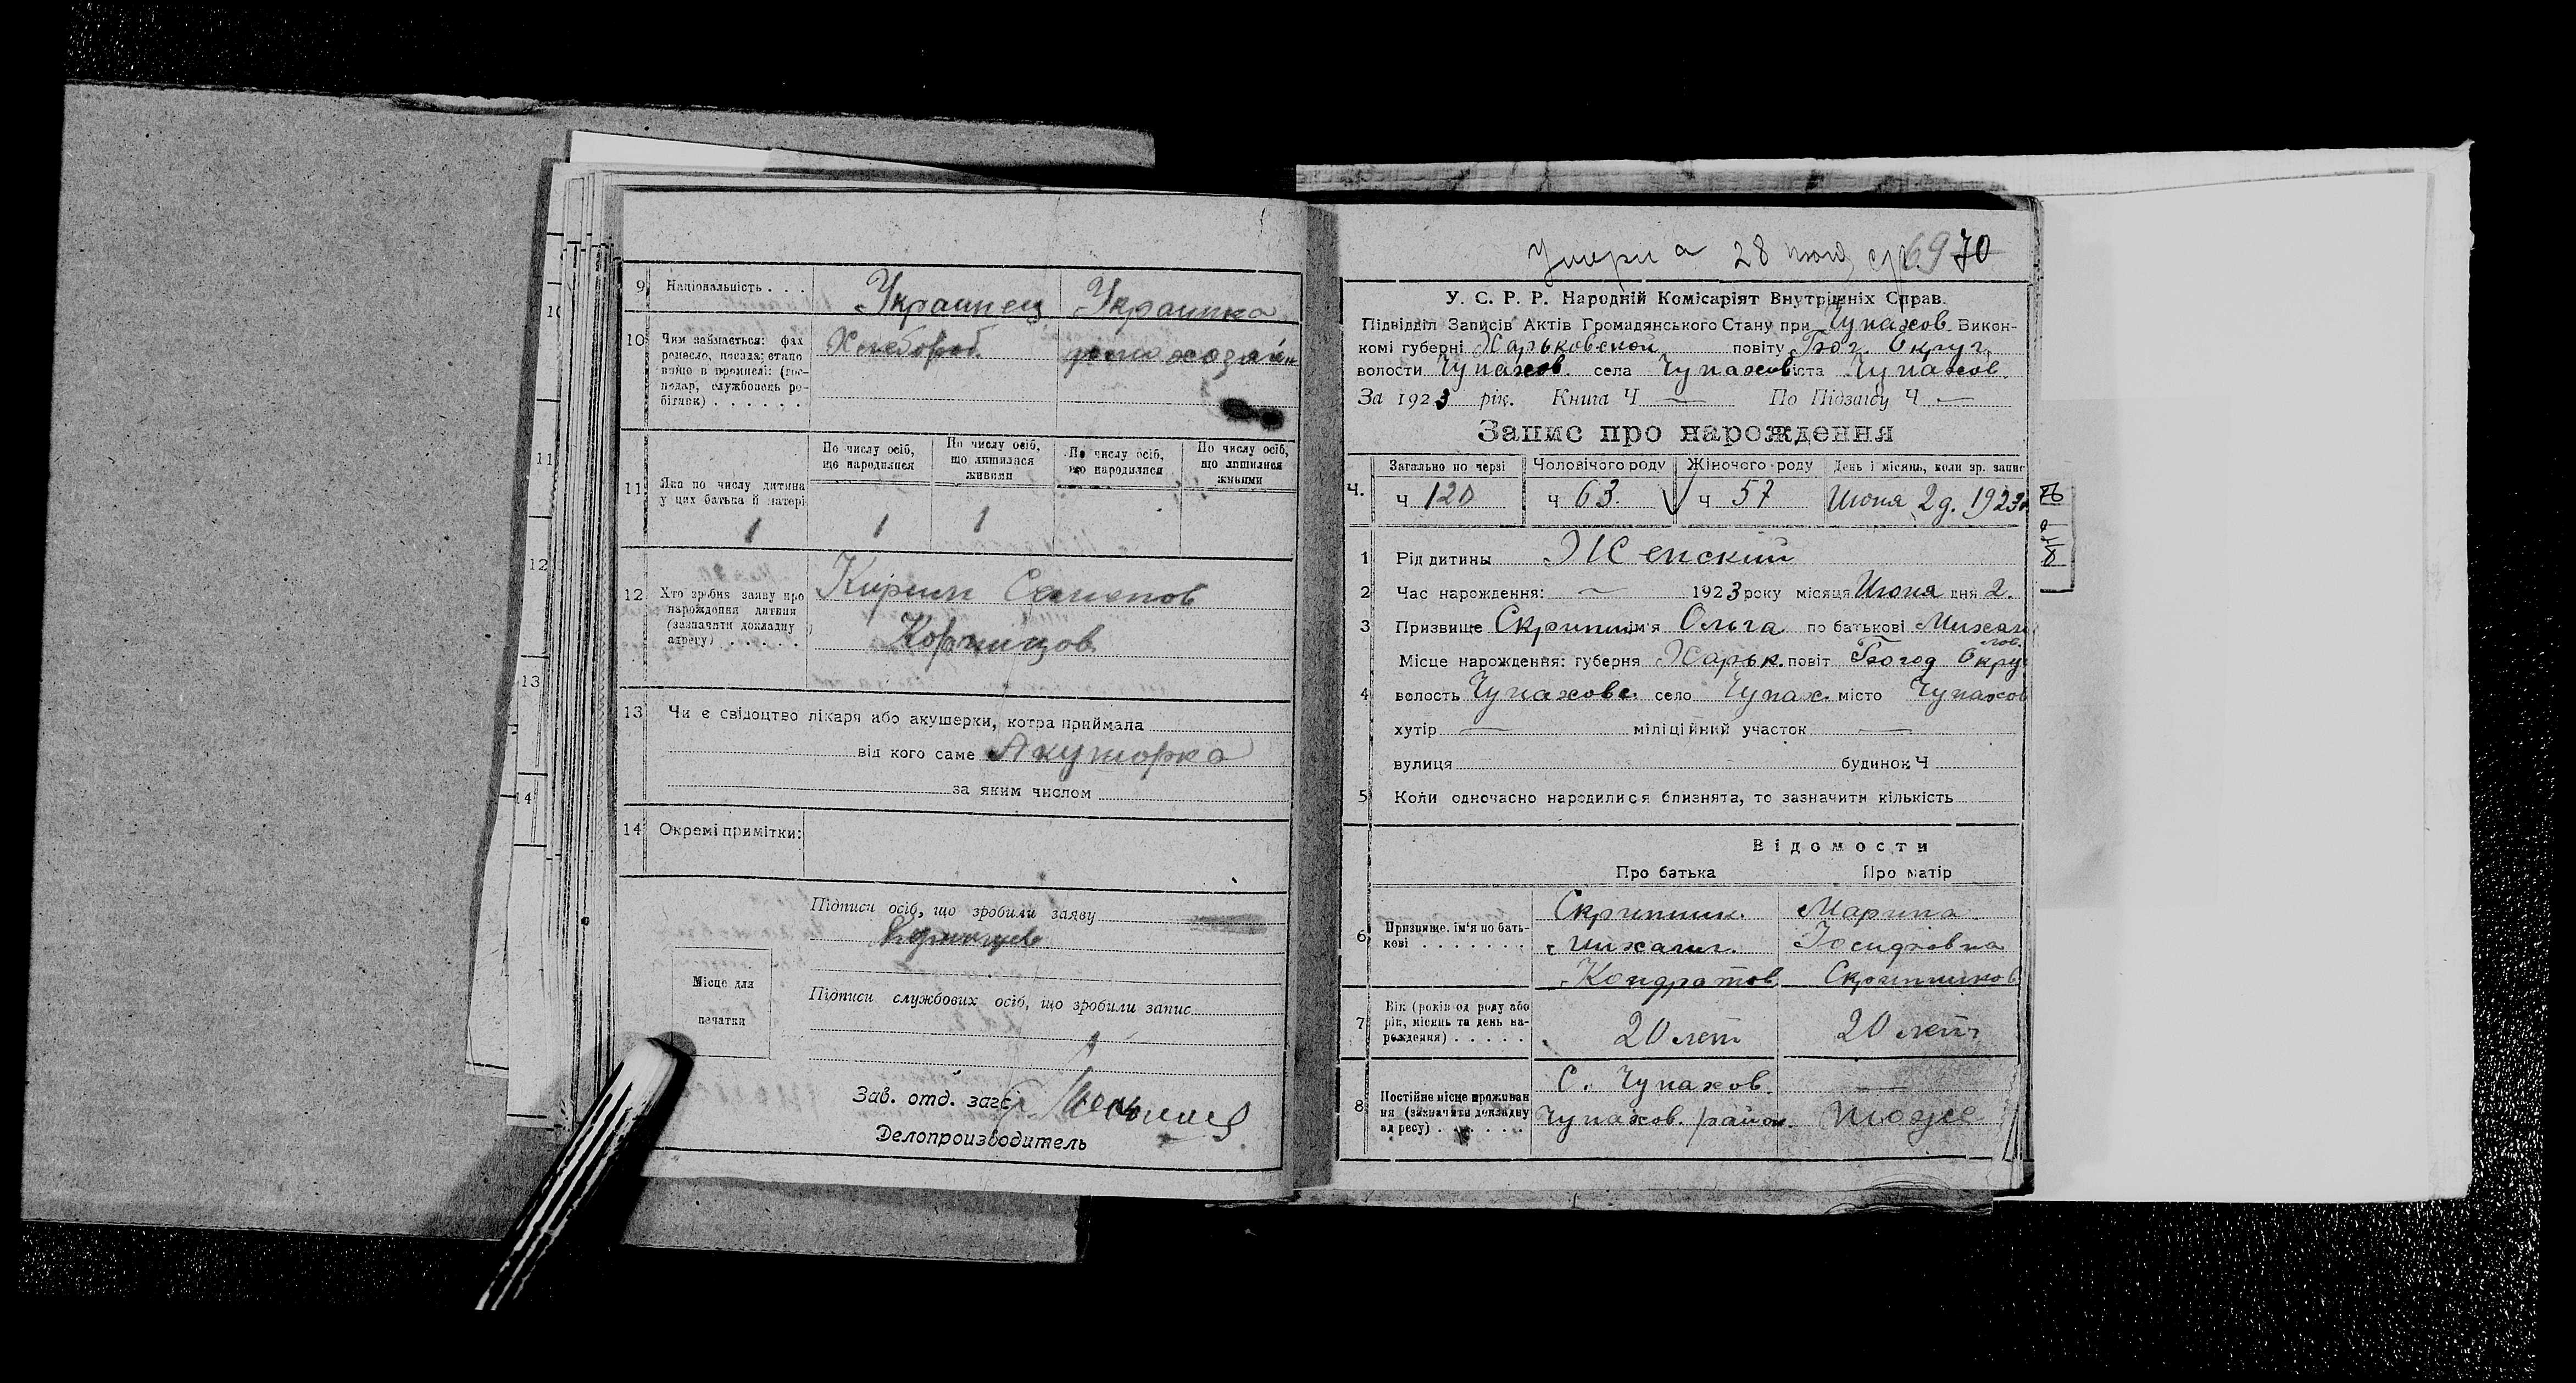 9 Національність . . . Украинец Украинка
10 Чим займається: фах Хлебороб. домохозяйк
ремесло, посада; стано
вище в промислі: (гос-
подар, службовець ро-
бітник) . . . . . .
По числу осіб, що народилися По числу осіб, що лишилися живими По числу осіб, що народилися По числу осіб, що лишилися живими
11 Яка по числу дитина
у цих батька й матері
1 1 1
12 Хто зробив заяву про Кирилл Семенов
нарождення дитини
(зазначити докладну
адресу) . . . . . .
13 Чи є свідоцтво лікаря або акушерки, котра приймала
від кого саме Акушорка
за яким числом
14 Окремі примітки:
Підписи осіб, що зробили заяву
Місце для
печатки
Підписи службових осіб, що зробили запис
Зав. отд. загс
Делопроизводитель
Умерла 28 69 70
У. С. Р. Р. Народній Комісаріят Внутрішніх Справ.
Підвідділ Записів Актів Громадянського Стану при Чупахов Викон-
комі губерні Харьковской повіту Бог. Округ,
волости Чупахов. села Чупахов міста Чупахов.
За 1923 рік. Книга Ч — По Підзагсу Ч —
Запис про нарождення
Загально по черзі Чоловічого роду Жіночого роду День і місянь, коли зр. запис
Ч. ч 120 ч 63. ч 57 Июня 2 д. 1923
1 Рід дитины Женский
2 Час нарождення: 1923 року місяця Июня дня 2.
3 Призвище Скрипник ім'я Ольга по батькові Михаи
лов.
Місце нарождення: губерня Харьк. повіт Богод Окру
4 волость Чупаховс. село Чупах. місто Чупахов
хутір — міліційний участок —
вулиця будинок Ч
5 Коли одночасно народилися близнята, то зазначити кількість
Відомости
Про батька Про матір
Скрипник. Марина
6 Призвище, ім'я по бать- Михаил. Иосифовна
кові . . . . . . . Кондратов Скрипников
7 Вік (років од роду або
рік, місянь та день на- 20 лет 20 лет
рождення) . . . . .
С. Чупахов —
8 Постійне місце проживан
ня (зазначити докладну Чупахов. район. тоже
адресу) . . . . . . .